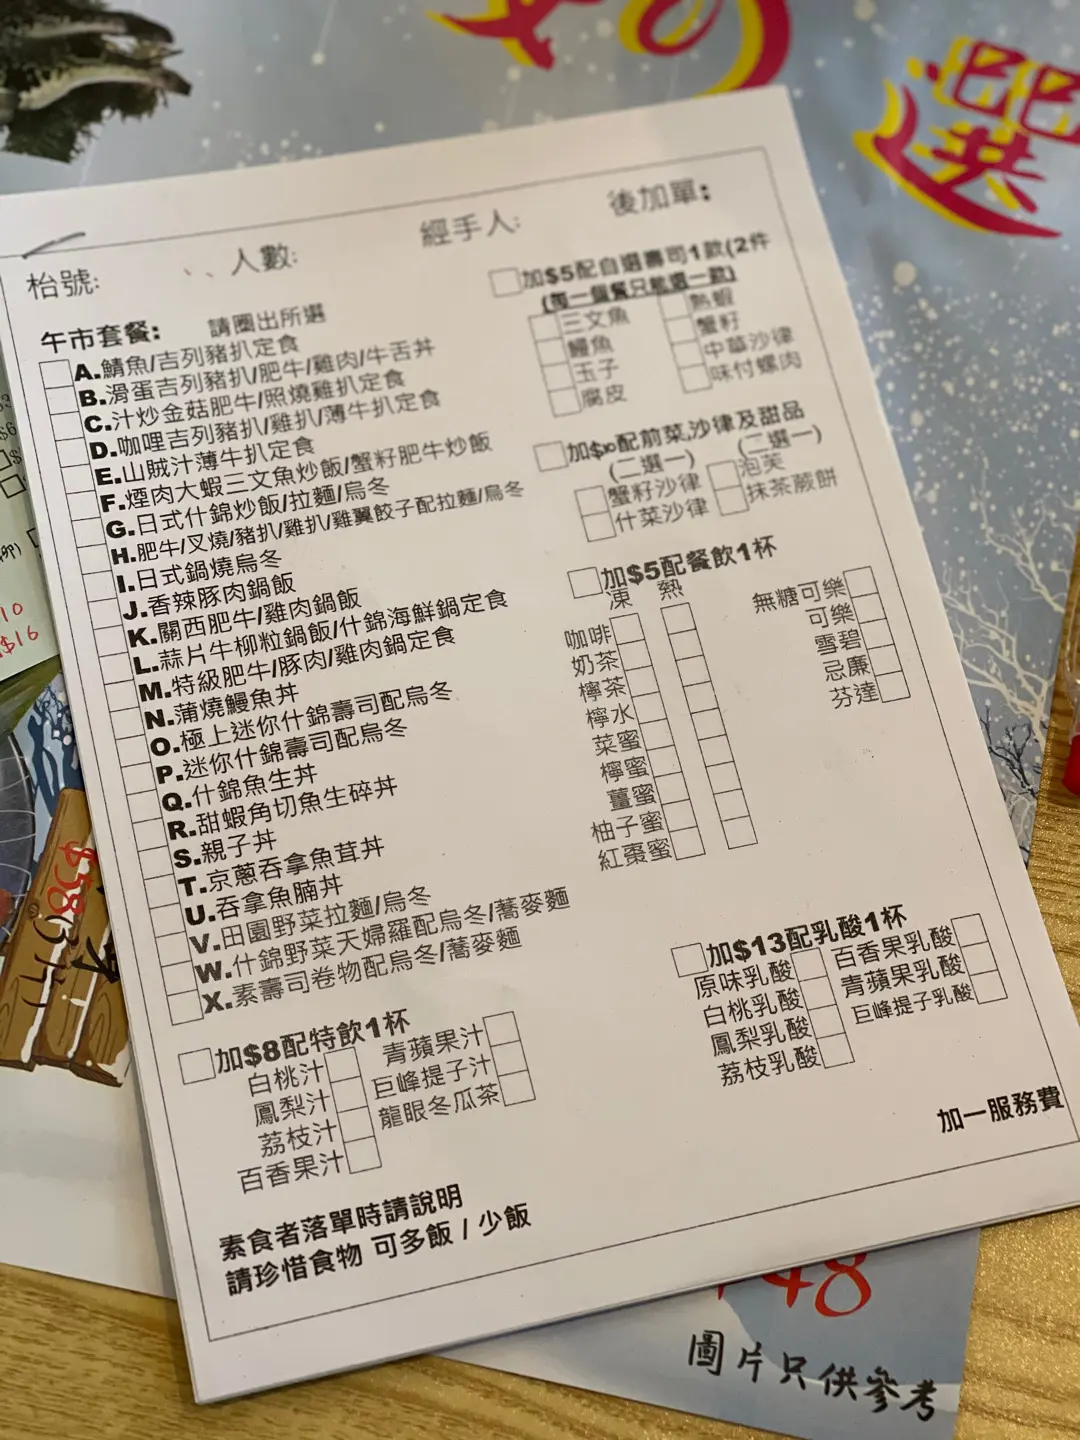 選
枱號:
人數:
經手人:
後加單:
午市套餐: 請圈出所選
A.鯖魚/吉列豬扒定食
B.滑蛋吉列豬扒/肥牛/雞肉/牛舌丼
C.汁炒金菇肥牛/照燒雞扒定食
D.咖哩吉列豬扒/雞扒/薄牛扒定食
E.山賊汁薄牛扒定食
F.煙肉大蝦三文魚炒飯/蟹籽肥牛炒飯
G.日式什錦炒飯/拉麵/烏冬
H.肥牛/叉燒/豬扒/雞扒/雞翼餃子配拉麵/烏冬
I.日式鍋燒烏冬
J.香辣豚肉鍋飯
K.關西肥牛/雞肉鍋飯
L.蒜片牛柳粒鍋飯/什錦海鮮鍋定食
M.特級肥牛/豚肉/雞肉鍋定食
N.蒲燒鰻魚丼
O.極上迷你什錦壽司配烏冬
P.迷你什錦壽司配烏冬
Q.什錦魚生丼
R.甜蝦角切魚生碎丼
S.親子丼
T.京蔥吞拿魚茸丼
U.吞拿魚腩丼
V.田園野菜拉麵/烏冬
W.什錦野菜天婦羅配烏冬/蕎麥麵
X.素壽司卷物配烏冬/蕎麥麵
加$5配自選壽司1款(2件
(每一個餐只能選一款)
三文魚
鰻魚
玉子
腐皮
熟蝦
蟹籽
中華沙律
味付螺肉
加$10配前菜,沙律及甜品
(二選一)
(二選一)
蟹籽沙律
什菜沙律
泡芙
抹茶蕨餅
加$5配餐飲1杯
凍 熱
咖啡
奶茶
檸茶
檸水
菜蜜
檸蜜
薑蜜
柚子蜜
紅棗蜜
無糖可樂
可樂
雪碧
忌廉
芬達
加$8配特飲1杯
白桃汁
鳳梨汁
荔枝汁
百香果汁
青蘋果汁
巨峰提子汁
龍眼冬瓜茶
加$13配乳酸1杯
原味乳酸
白桃乳酸
鳳梨乳酸
荔枝乳酸
百香果乳酸
青蘋果乳酸
巨峰提子乳酸
加一服務費
素食者落單時請說明
請珍惜食物 可多飯 / 少飯
$16
$58
48
圖片只供參考